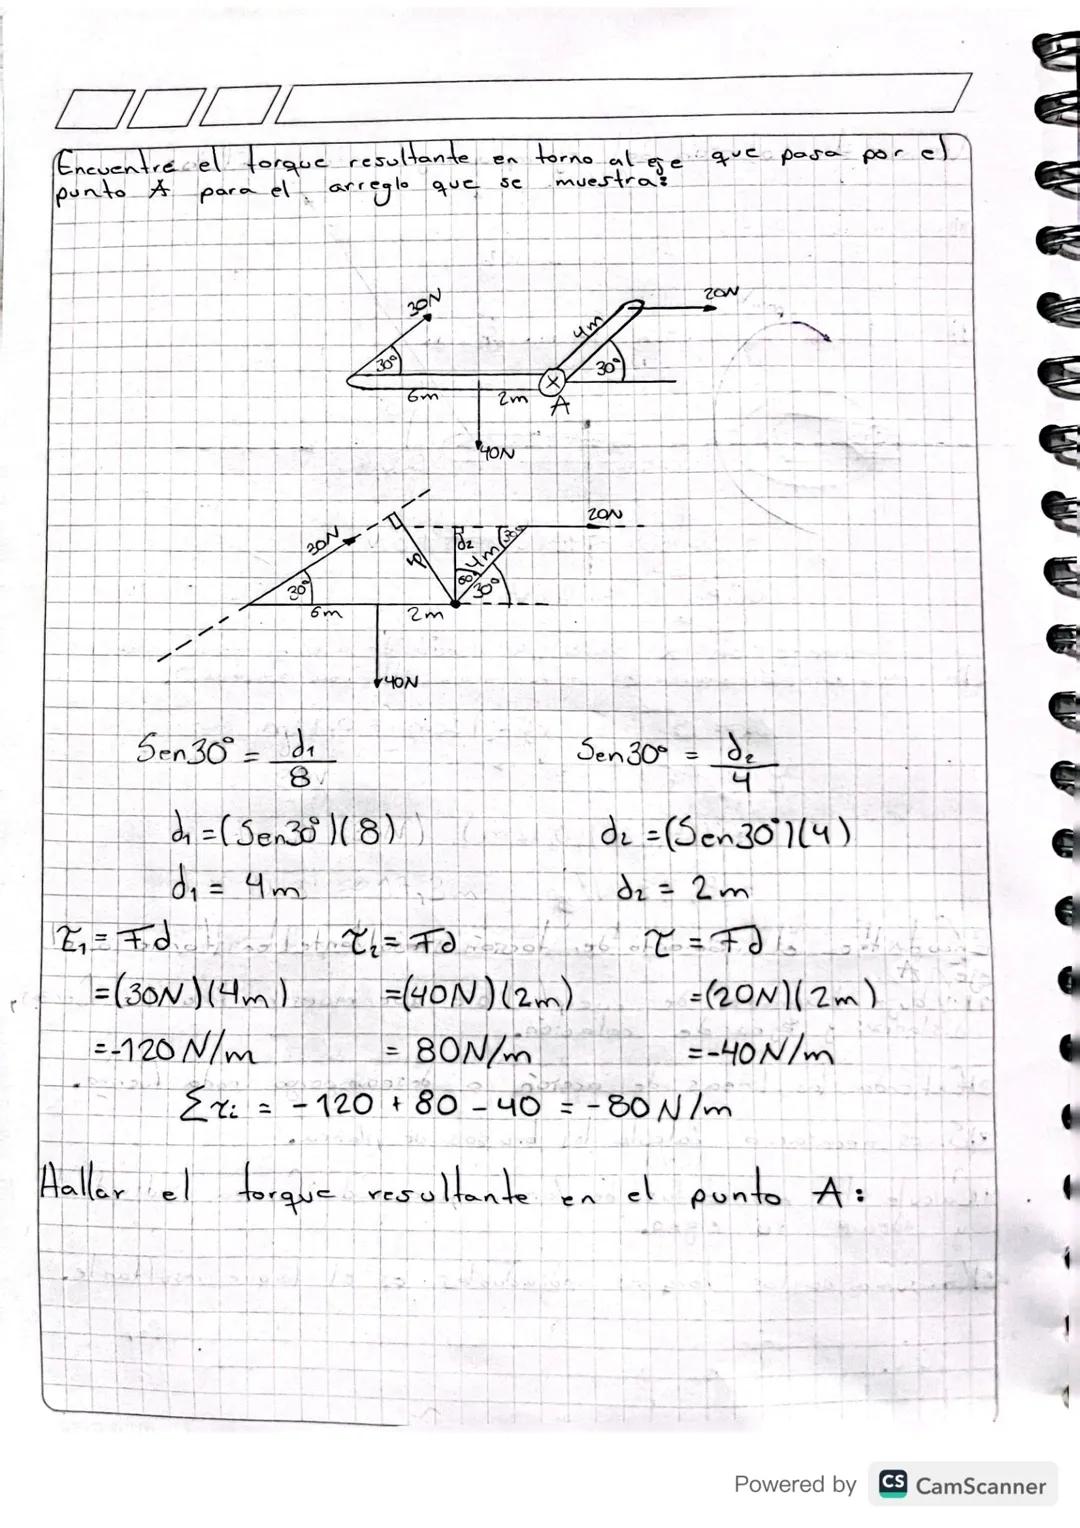 Encuentre el torque resultante en torno al eje que pasa por el
punto A para el arreglo que se muestra:
30N
20N
4m
30°
30°
6m
2m
A
40N
20N
30N
d2
4m
30°
d1
60°
30°
30°
6m
2m
40N
Sen30° = d1/8
Sen30° = d2/4
d1 =(Sen30°)(8)
d2 =(Sen30°)(4)
d1 = 4m
d2 = 2m
τ1 = Fd
τ2 = Fd
τ = Fd
=(30N)(4m)
=(40N)(2m)
=(20N)(2m)
=-120 N/m
= 80N/m
=-40N/m
Στi = -120 + 80 - 40 = -80 N/m
Hallar el torque resultante en el punto A:
Powered by CS CamScanner